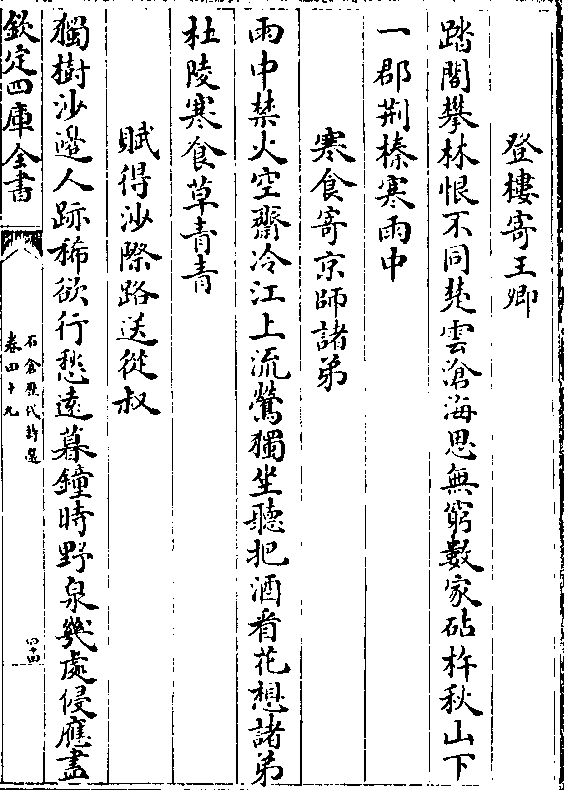 登樓寄王卿
踏閣攀林恨不同楚雲滄海思無窮數家砧杵秋山下
一郡荆榛寒雨中
寒食寄京師諸弟
雨中禁火空齋冷江上流鶯獨坐聽把酒看花想諸弟
杜陵寒食草青青
賦得沙際路送從叔
獨樹沙邊人跡稀欲行愁遠暮鐘時野泉幾處侵應盡
欽定四庫全書
石倉歷代詩選
卷四十九
四十四